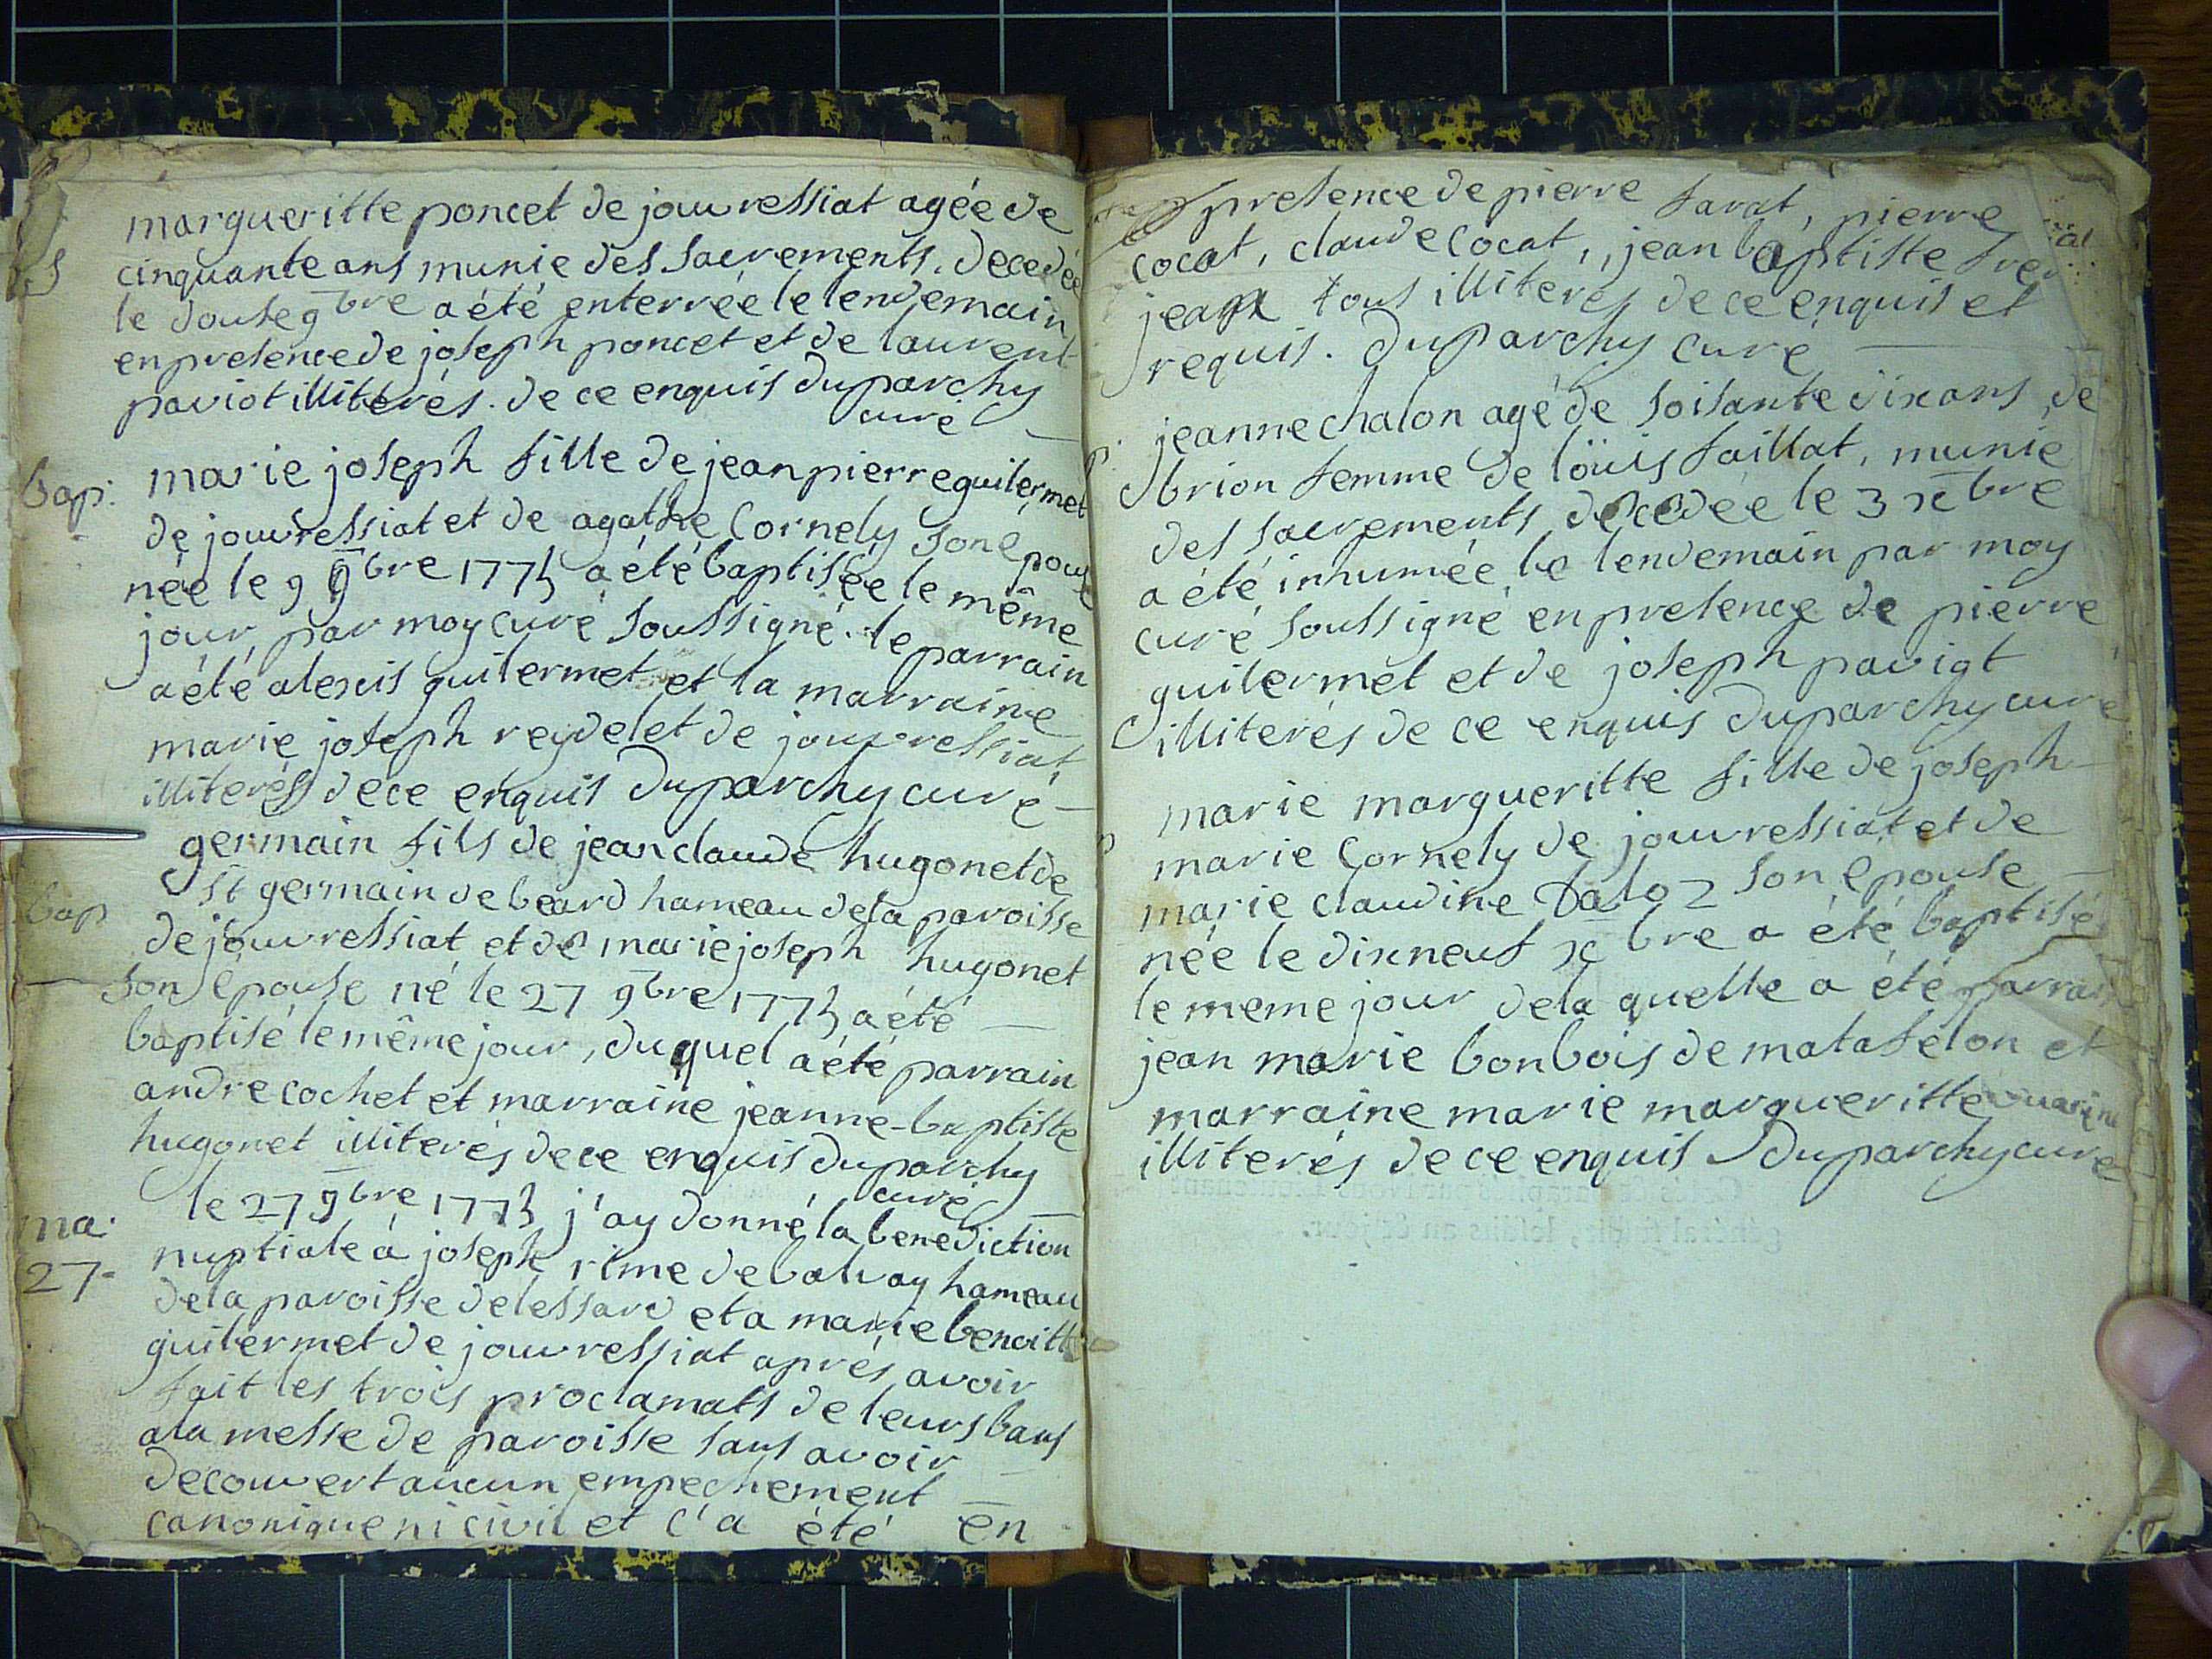 margueritte poncet de jouvressiat agée de
cinquante ans munie des sacrements. decedée
le douse 9bre a été enterrée le lendemain
en presence de joseph poncet et de laurent
paviot illiterés. de ce enquis duparchy
curé
bap: marie joseph fille de jean pierre guilermet
de jouvressiat et de agathe Cornely son epouse
née le 9 9bre 1773 a été baptisée le même
jour, par moy curé soussigné. le parrain
a été alexis guilermet et la marraine
marie joseph reydelet de jouvressiat,
illiterés de ce enquis Duparchy curé
germain fils de jean claude hugonet de
bap st germain de beard hameau de la paroisse
de jouvressiat et de marie joseph hugonet
son epouse né le 27 9bre 1773 a été
baptisé le même jour, duquel a été parrain
andre cochet et marraine jeanne-baptiste
hugonet illiterés de ce enquis duparchy
curé
ma. le 27 9bre 1773 j'ay donné la benediction
27- nuptiale á joseph rime de balvay hameau
de la paroisse de lessard et a marie benoitte
guilermet de jouvressiat aprés avoir
fait les trois proclamats de leurs bans
a la messe de paroisse sans avoir
decouvert aucun empechement
canonique ni civil et c'a été en
presence de pierre favat, pierre
cocat, claude cocat,, jean baptiste
jean tous illiterés de ce enquis et
requis. duparchy curé
jeanne chalon agé de soisante dix ans, de
brion femme de loüis faillat, munie
des sacrements decedée le 3 xbre
a été inhumée le lendemain par moy
curé soussigné en presence de pierre
guilermet et de joseph paviot
illiterés de ce enquis duparchy curé
marie margueritte fille de joseph
marie Cornely de jouvressiat et de
marie claudine Daloz son epouse
née le dixneuf xbre a été baptisé
le meme jour de la quelle a été parrain
jean marie bonbois de matafelon et
marraine marie margueritte
illiterés de ce enquis Duparchy curé